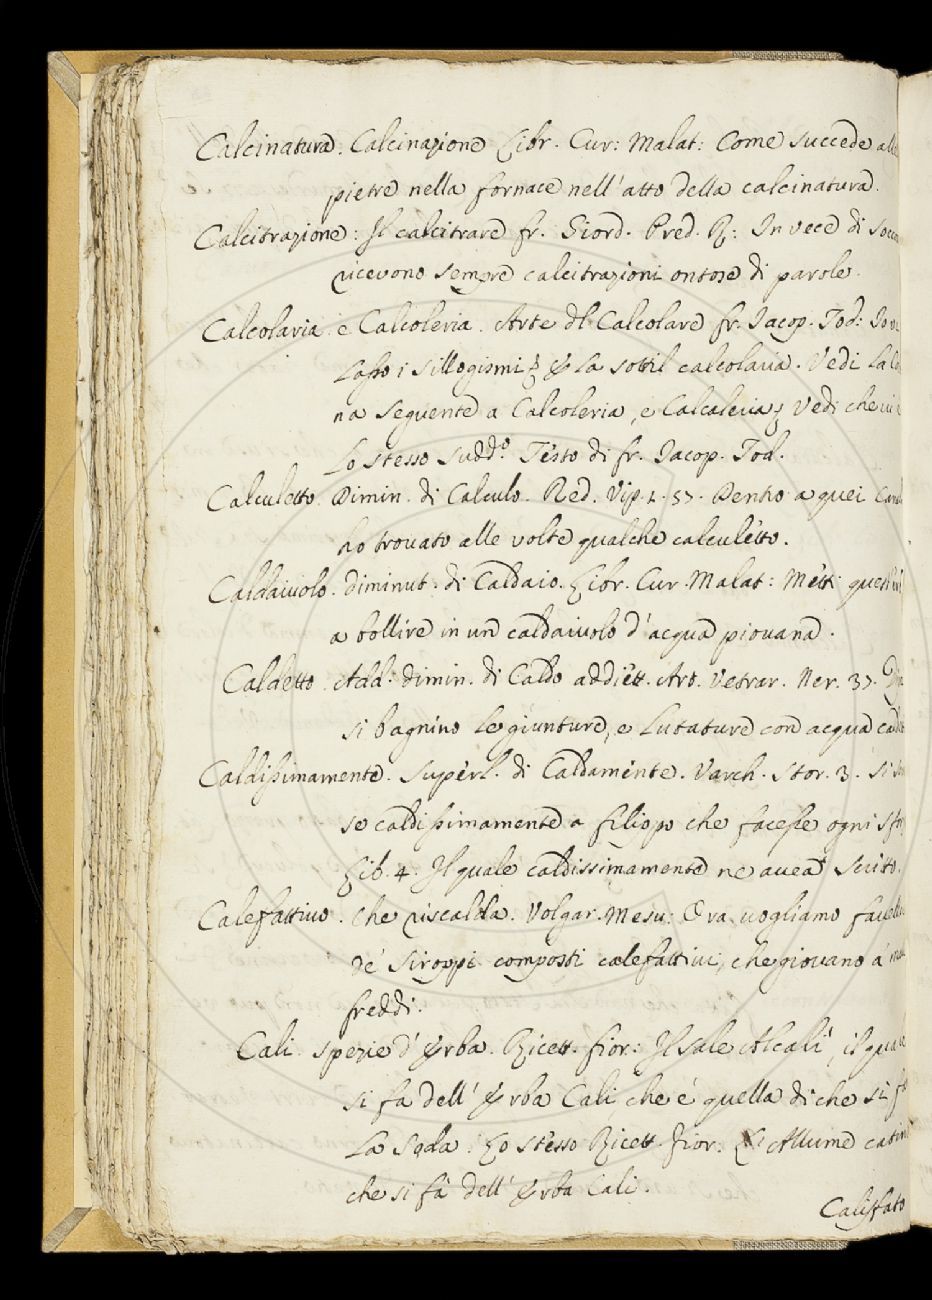 Calcinatura. Calcinazione Libr. Cur: Malat: Come succede alle
pietre nella fornace nell'atto della calcinatura.
Calcitrazione: Il calcitrare fr. Giord. Pred. R: In vece di
ricevono sempre calcitrazioni ontose di parole.
Calcolaria e Calcoleria. Arte dl Calcolare fr. Iacop. Tod:
Lasso i sillogismi E La sottil calcolaria. Vedi La
na seguente a Calcoleria, e Calcaleria; Vedi che
Lo stesso sudd.º Testo di fr. Iacop. Tod.
Calculetto Dimin. di Calculo. Red. Vip. 1. 57. Dentro a quei
no trovato alle volte qualche calculetto.
Caldaiuolo. diminut: di Caldaio. Libr. Cur. Malat: Metti
a bollire in un caldaiuolo d'acqua piovana.
Caldetto. Add: dimin. di Caldo addiett. Art. Vetrar. Ner. 37.
si bagnino le giunture, e Lutature con acqua
Caldissimamente. Superl. di Caldamente. Varch. Stor. 3. Si
se caldissimamente a filippo che facesse ogni
Lib. 4. Il quale caldissimamente ne avea scritto.
Calefattivo. Che riscalda. Volgar. Mesu: Ora vogliamo
de' Siroppi composti calefattivi, che giovano á
freddi.
Cali. spezie d'Erba. Ricett. fior: Il Sale Alcalí, il quale
si fa dell'Erba Cali che é quella di che si
La Soda. Lo stesso Ricett. fior: Allume
che si fá dell'Erba Cali.
Califfato